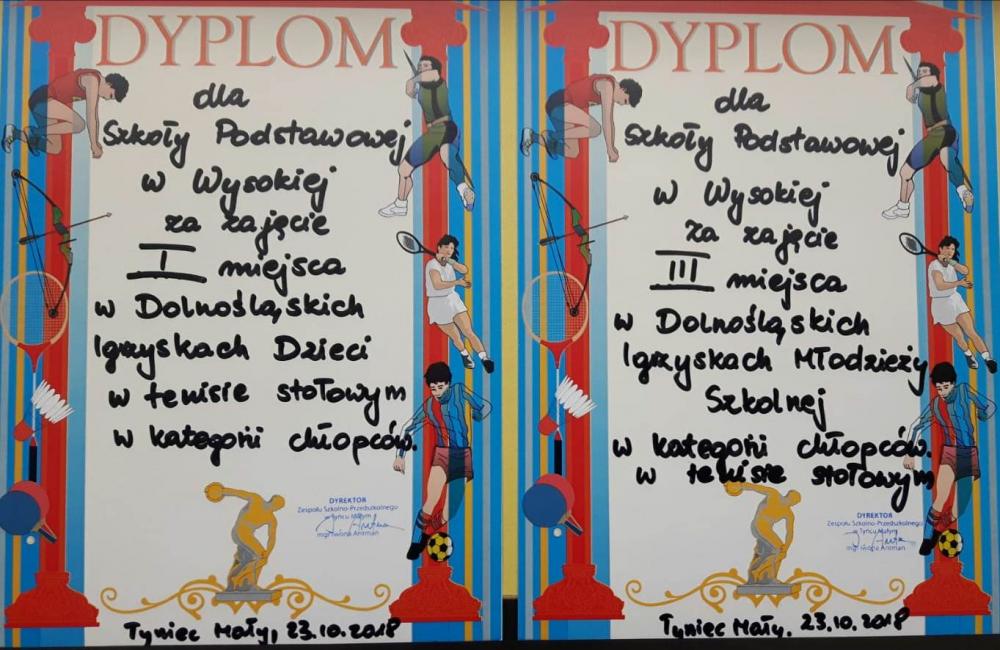 DYPLOM
dla
Szkoły Podstawowej
w Wysokiej
za zajęcie
I miejsca
w Dolnośląskich
Igrzyskach Dzieci
w tenisie stołowym
w kategorii chłopców.
DYREKTOR
Zespołu Szkolno-Przedszkolnego
w Tyńcu Małym
mgr Iwona Antman
Tyniec Mały, 23.10.2018
DYPLOM
dla
Szkoły Podstawowej
w Wysokiej
za zajęcie
III miejsca
w Dolnośląskich
Igrzyskach Młodzieży
Szkolnej
w kategorii chłopców.
w tenisie stołowym
DYREKTOR
Zespołu Szkolno-Przedszkolnego
w Tyńcu Małym
mgr Iwona Antman
Tyniec Mały. 23.10.2018